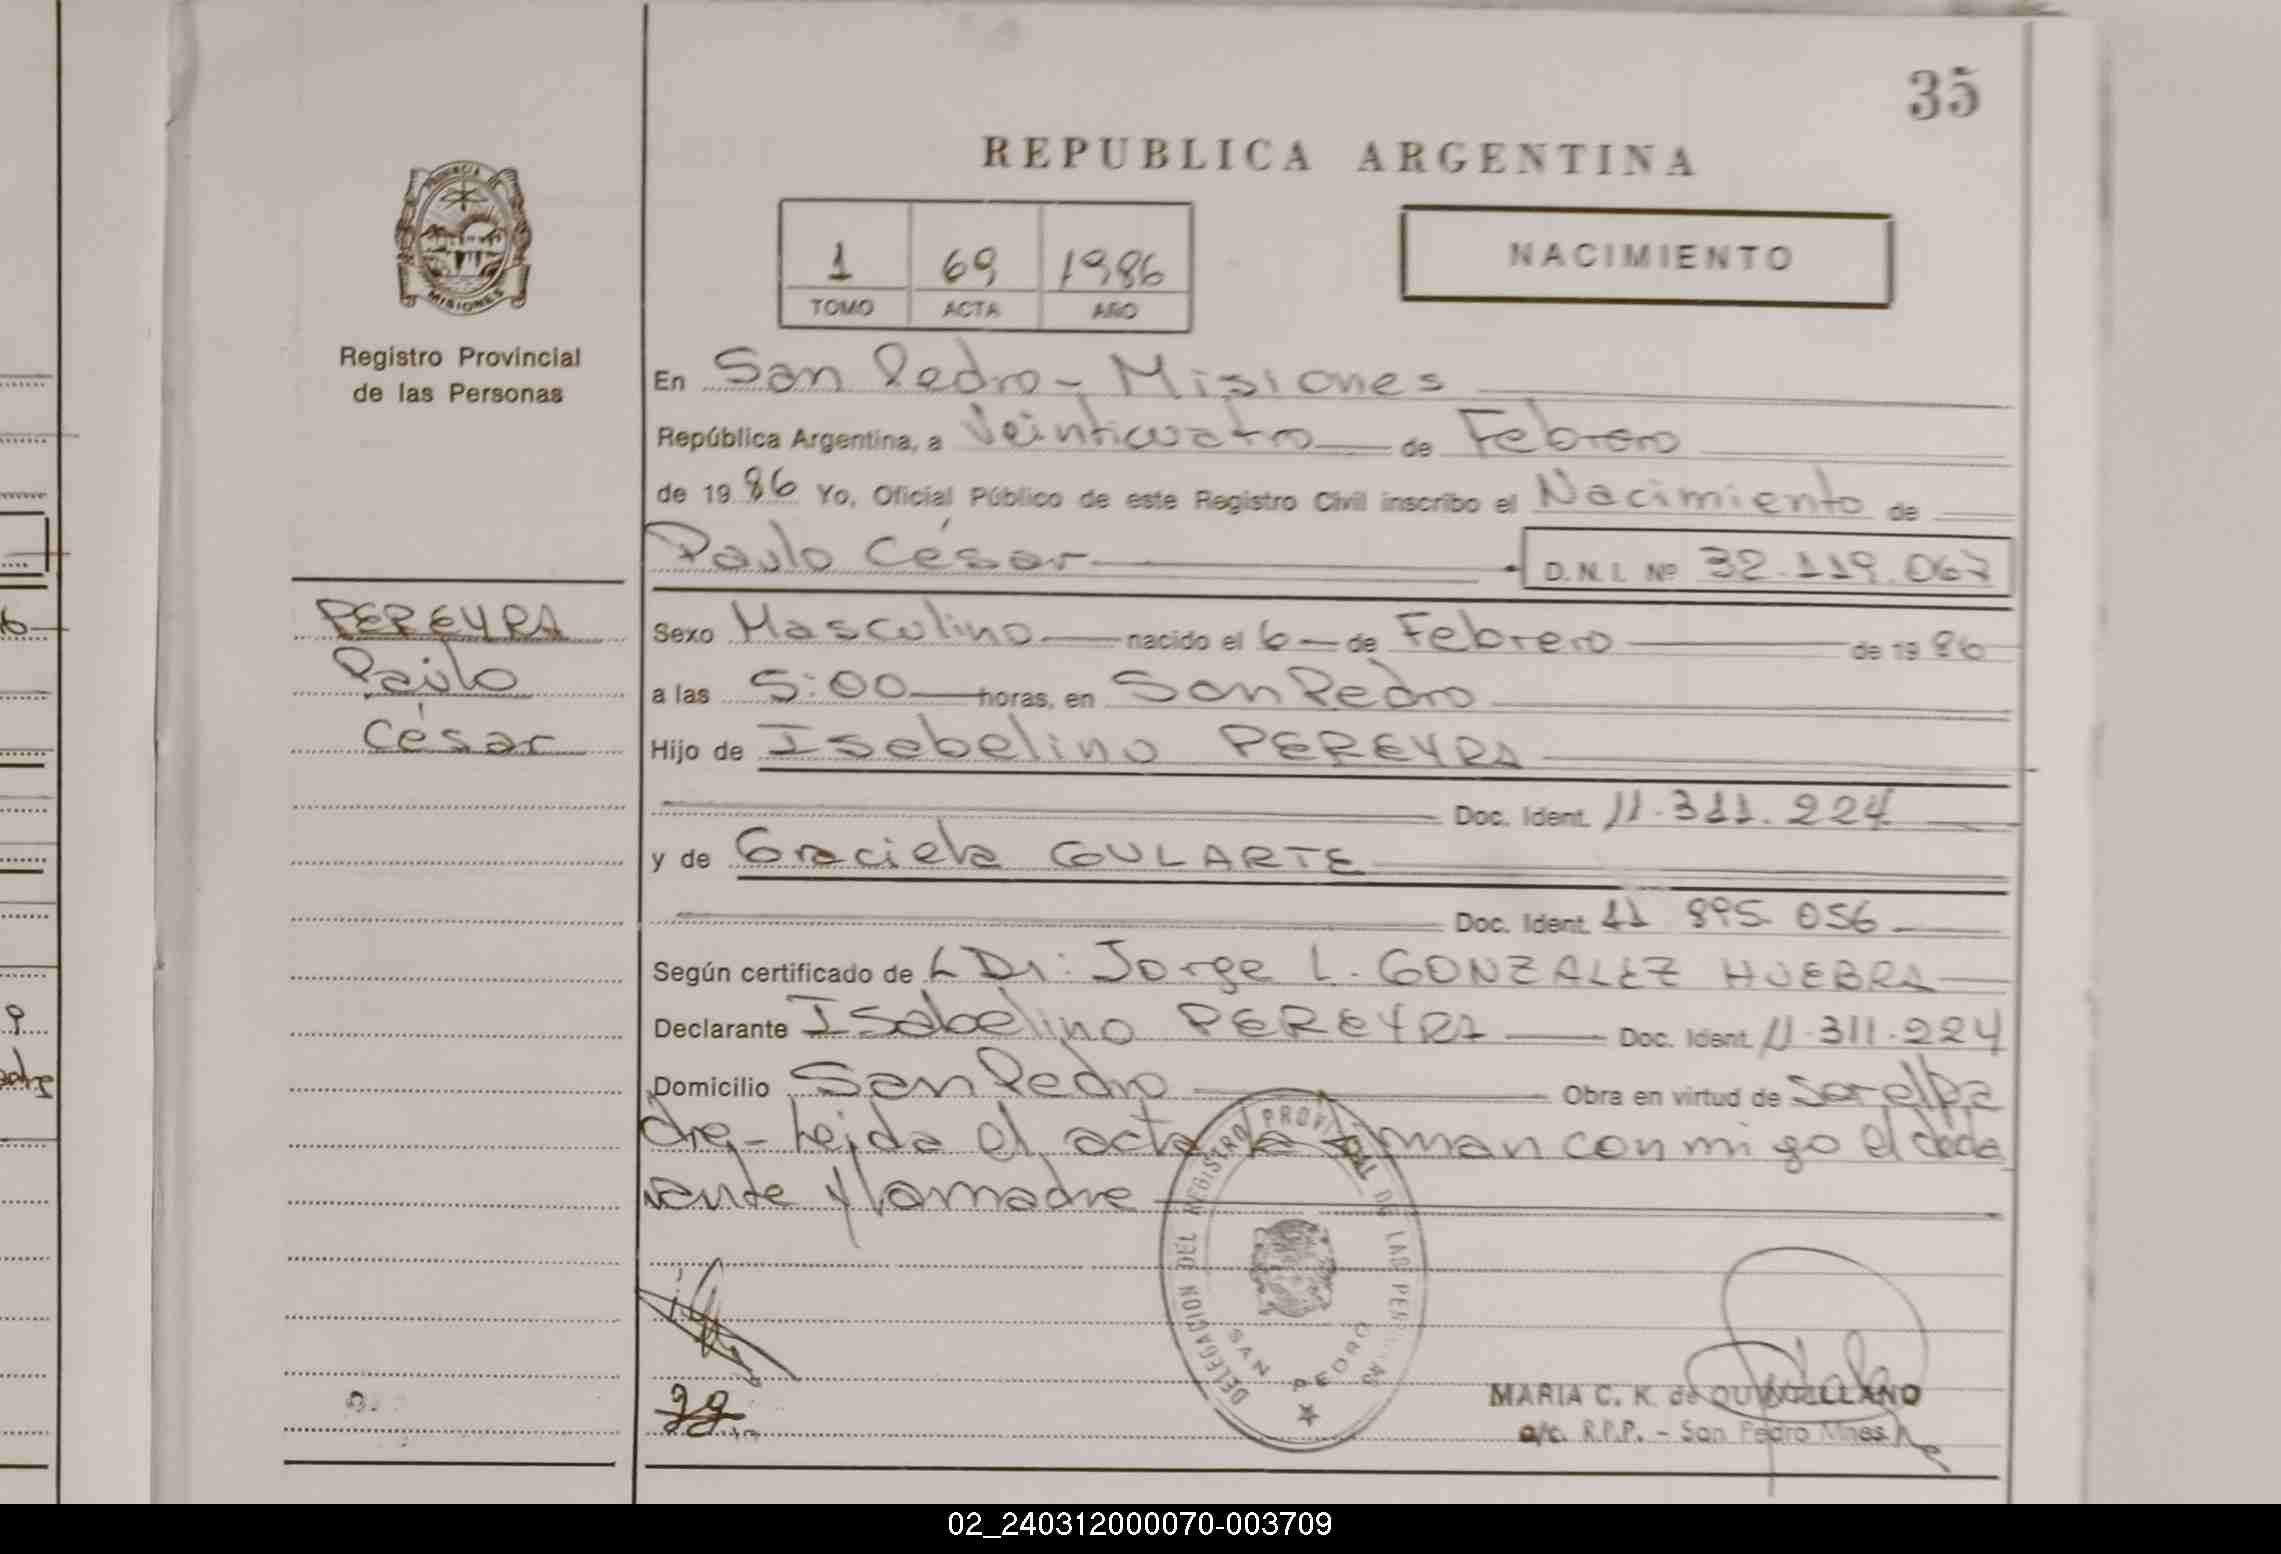 35
REPUBLICA ARGENTINA
PROVINCIA DE
MISIONES
Registro Provincial
de las Personas
1 69 1986
TOMO ACTA AÑO
NACIMIENTO
En San Pedro - Misiones
República Argentina, a Veinticuatro de Febrero
de 1986 Yo, Oficial Público de este Registro Civil inscribo el Nacimiento de
Paulo César D.N.I. Nº 32.119.067
PEREYRA
Paulo
César
Sexo Masculino nacido el 6 de Febrero de 1986
a las 5:00 horas, en San Pedro
Hijo de Isabelino PEREYRA
Doc. Ident. 11.311.224
y de Graciela GULARTE
Doc. Ident. 11 895 056
Según certificado de Dr: Jorge L. GONZALEZ HUEBRA
Declarante Isabelino PEREYRA Doc. Ident. 11.311.224
Domicilio San Pedro Obra en virtud de ser el pa
dre - Leida el acta la firman conmigo el decla
rante y la madre
DELEGACION DEL REGISTRO PROVINCIAL DE LAS PERSONAS
SAN PEDRO
MARIA C. K. de
a/c. R.P.P. - San Pedro Mnes.
02_240312000070-003709